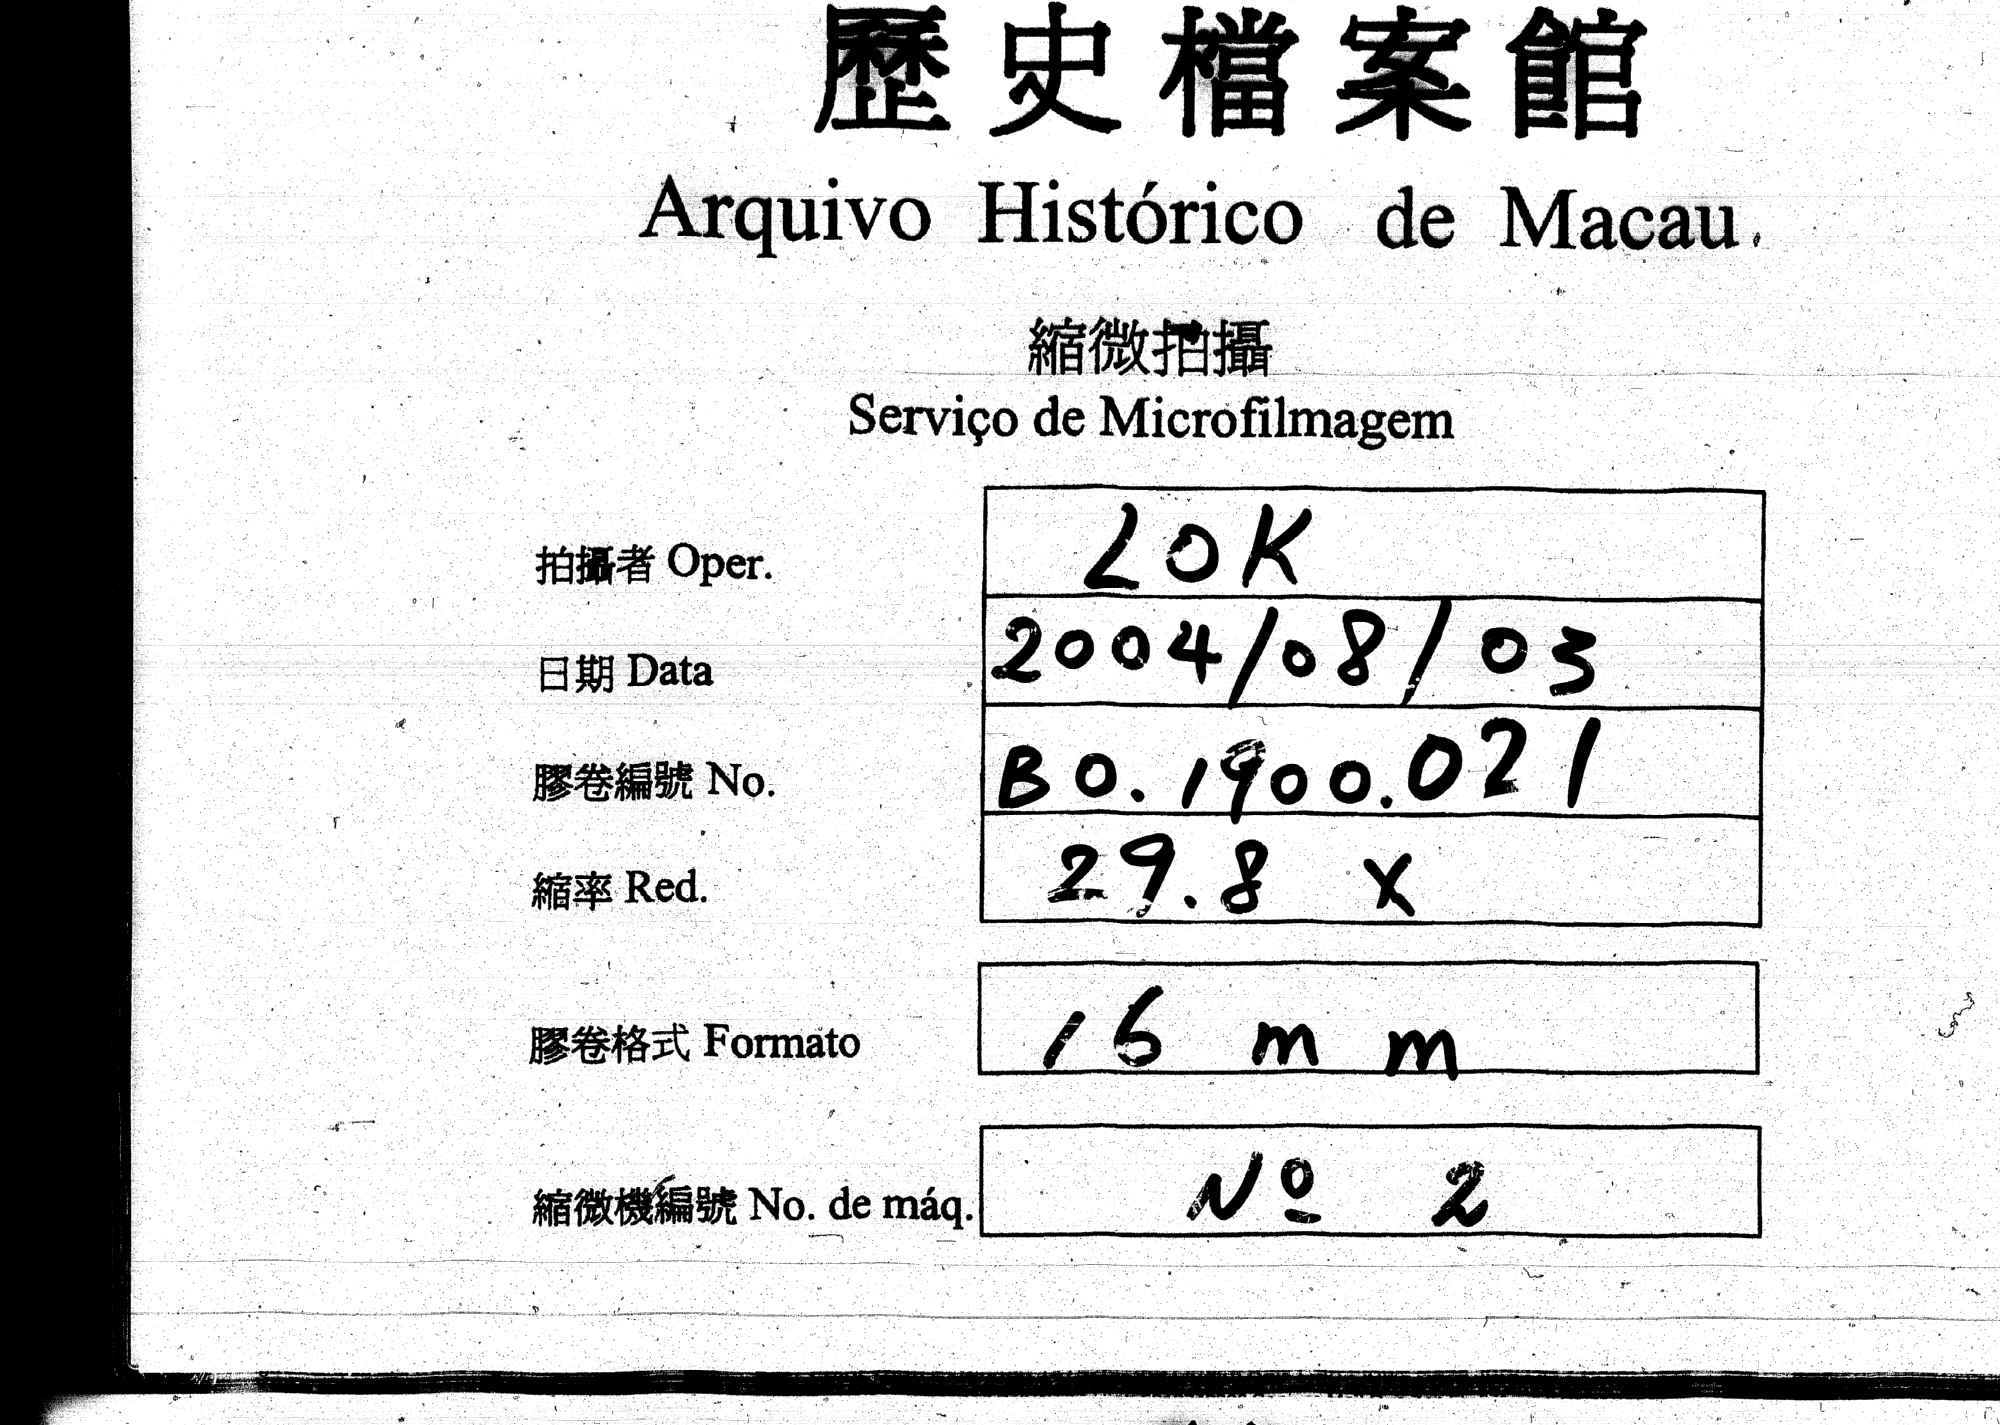 歷史檔案館
Arquivo Histórico de Macau.
縮微拍攝
Serviço de Microfilmagem
拍攝者 Oper. LOK
日期 Data 2004/08/03
膠卷編號 No. BO.1900.021
縮率 Red. 29.8 X
膠卷格式 Formato 16 mm
縮微機編號 No. de máq. Nº 2